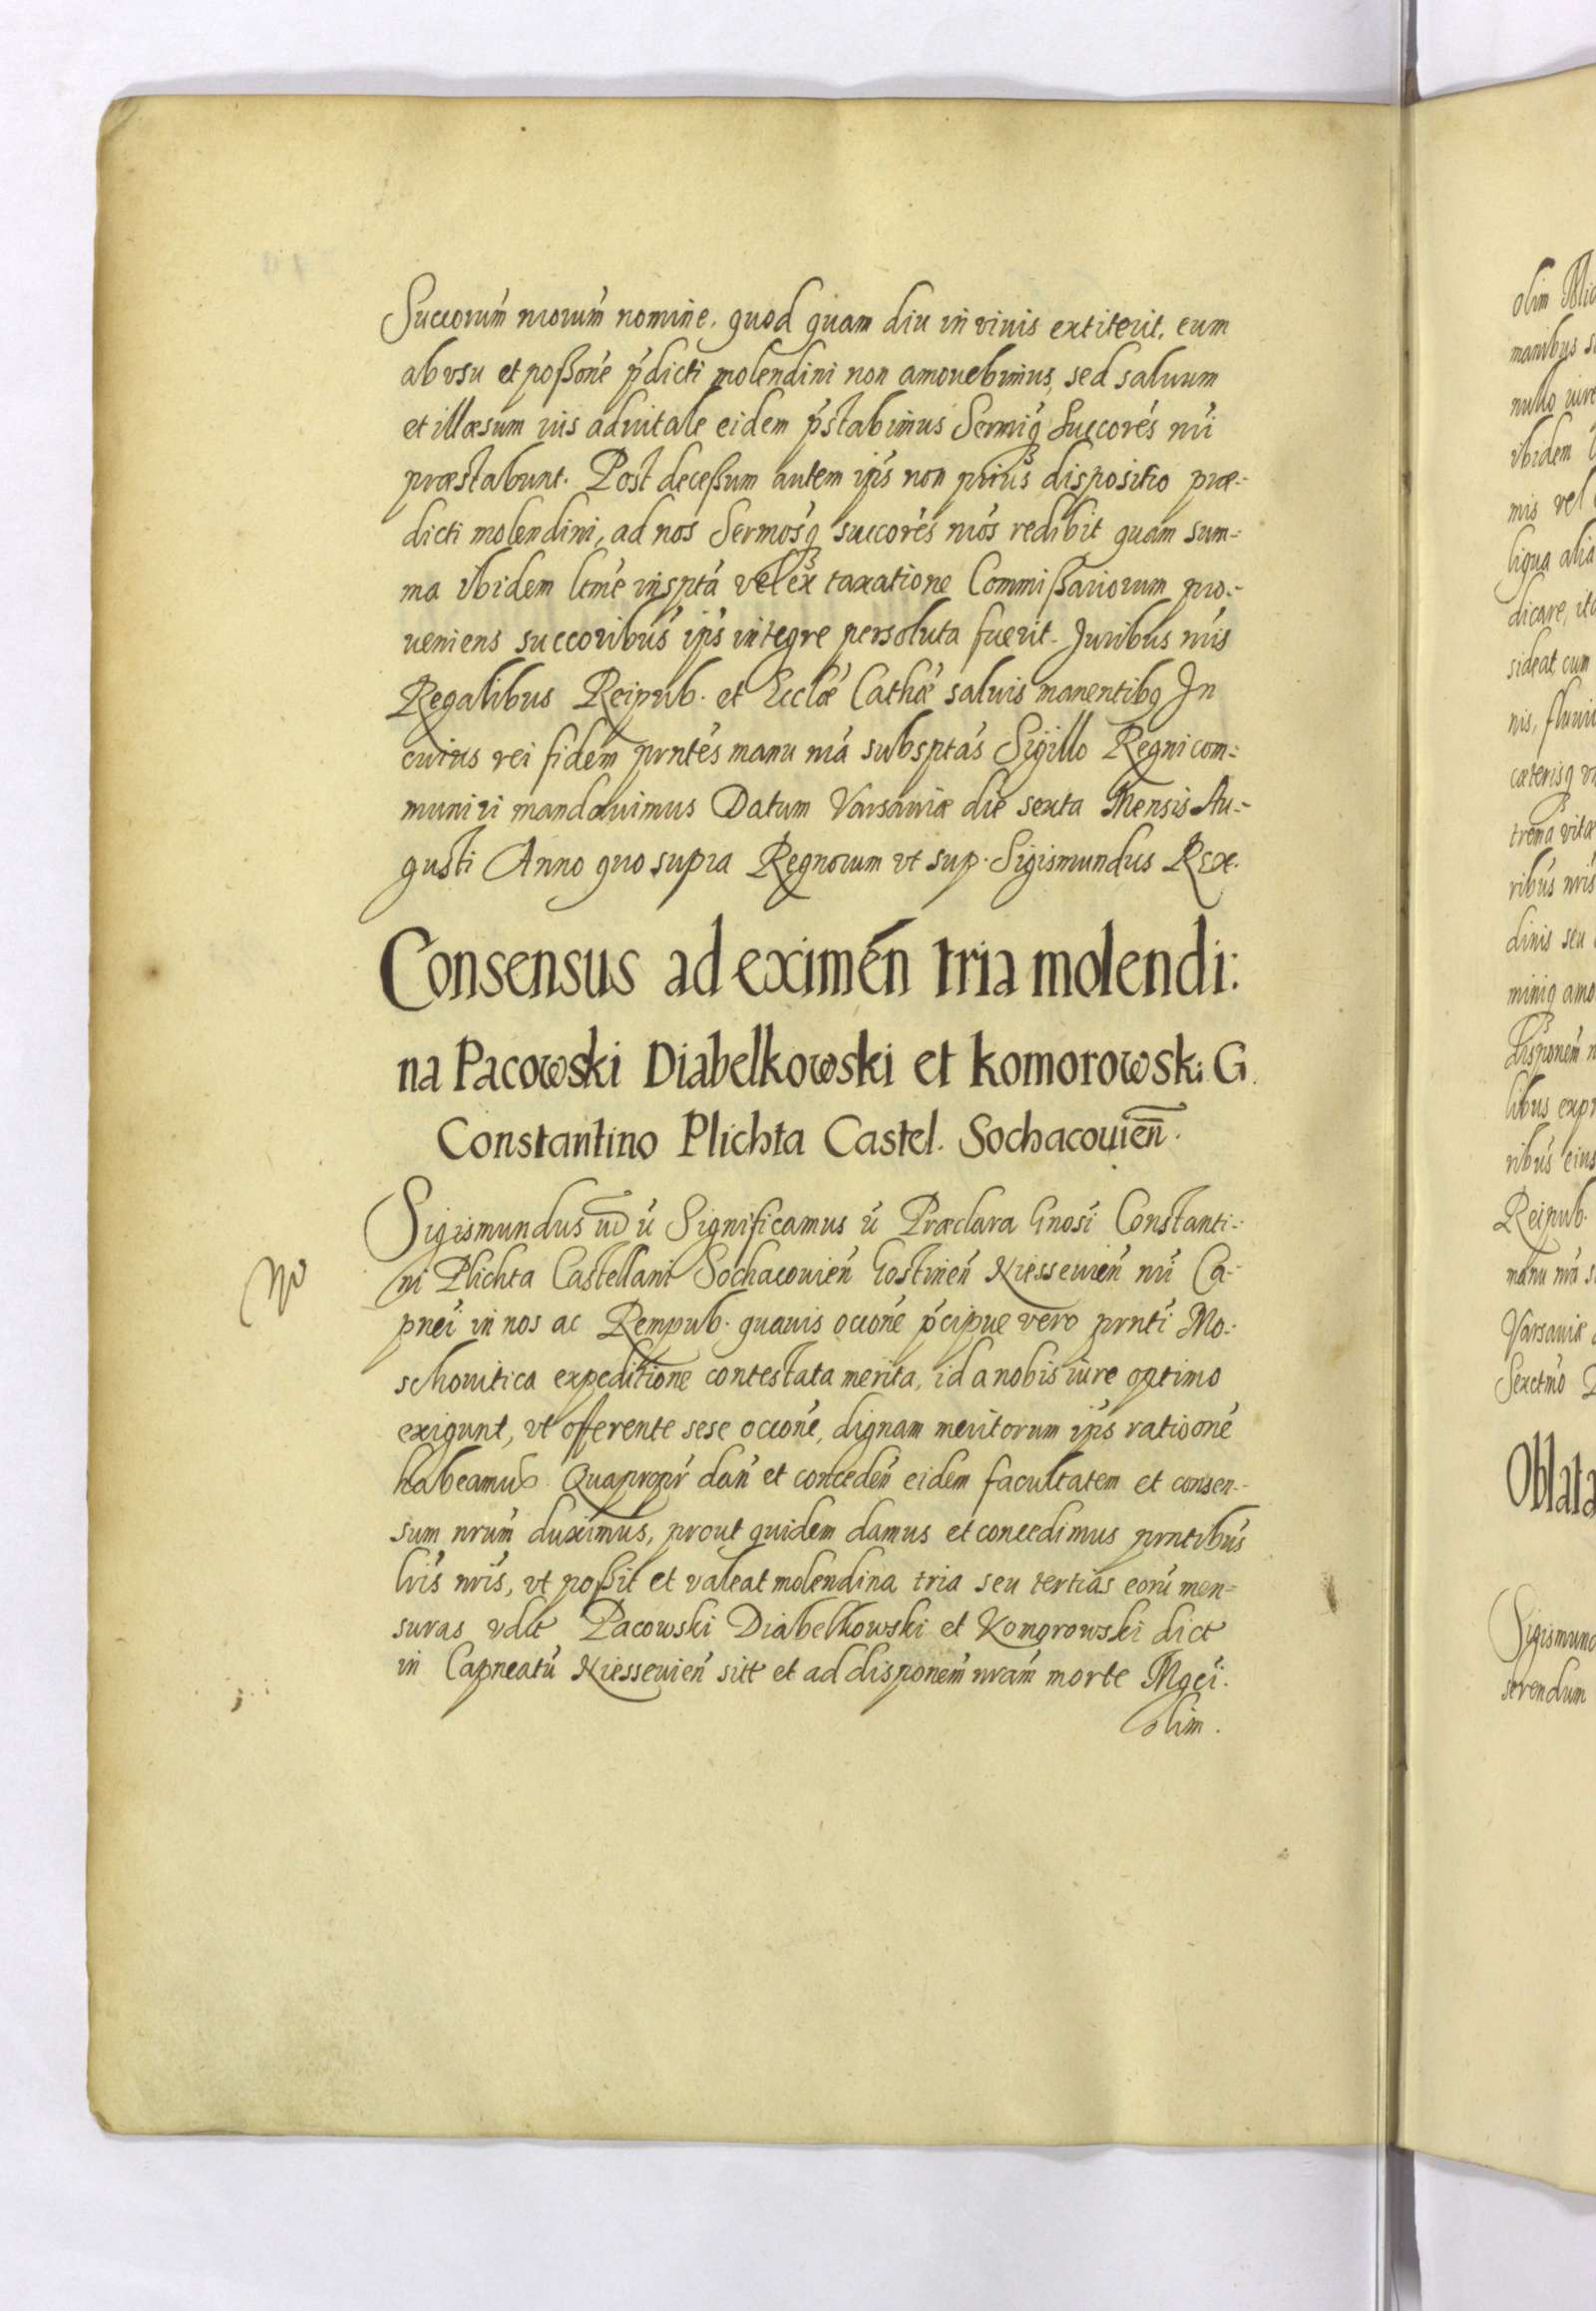 Succoruḿ nroruḿ nomine. quod quam diu in viuis extiterit, eum
ab vsu et poßone ṕdicti molendini non amouebimus, sed saluum
et illæsum ius aduitale eidem ṕstabimus Sermiq́ Succores nr̃i
præstabunt. Post deceßum autem ip̃s non prius dispositio præ-
dicti molendini, ad nos Sermosq́ succores nr̃os redibit quam sum-
ma ibidem ltm̃e insptã vel ex taxatione Commißariorum pro-
ueniens succoribus ip̃s integre persoluta fuerit. Juribus nr̃is
Regalibus Reipub. et Ecclæ Cathæ saluis manentibq In
cuius rei fidem prntes manu nr̃a subsptas Sigillo Regni com-
muniri mandauimus Datum Varsauiæ die sexta Mensis Au-
gusti Anno quo supra Regnorum vt sup. Sigismundus Rex.
Consensus ad eximeń tria molendi:
na Pacowski Diabelkowski et Komorowski G.
Constantino Plichta Castel. Sochacouień.
Sigismundus ut́ ú Significamus ú Præclara Gnosi Constanti-
ni Plichta Castellani Sochacouień Gostineń Kiessewień nr̃i Ca-
pnei in nos ac Rempub. quauis occone ṕcipue vero prnti Mo-
schouitica expeditione contestata merita, id a nobis iure optimo
exigunt, vt offerente sese occone, dignam meritorum ip̃s rationé
habeamus. Quapropr̃ dań et concedeń eidem facultatem et consen-
sum nrum duximus, prout quidem damus et concedimus prntibus
lris nris, vt poßit et valeat molendina tria seu tertias eorú men-
suras vdlt Pacowski Diabelkowski et Komorowski dict
in Capneatú Kiessewień sitt et ad disponem nram morte Mgci.
olim.